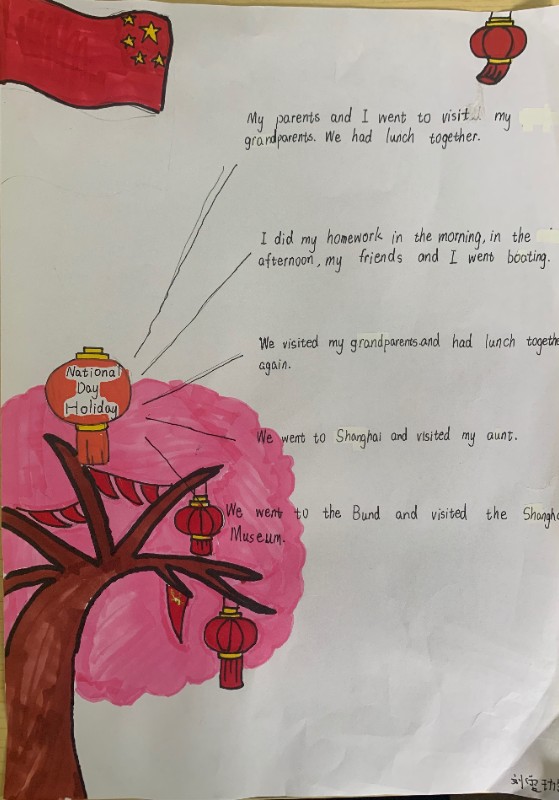 My parents and I went to visit my
grandparents. We had lunch together.
I did my homework in the morning, in the
afternoon, my friends and I went boating.
We visited my grandparents and had lunch
again.
National
Day
Holiday
We went to Shanghai and visited my aunt.
We went to the Bund and visited the
Museum.